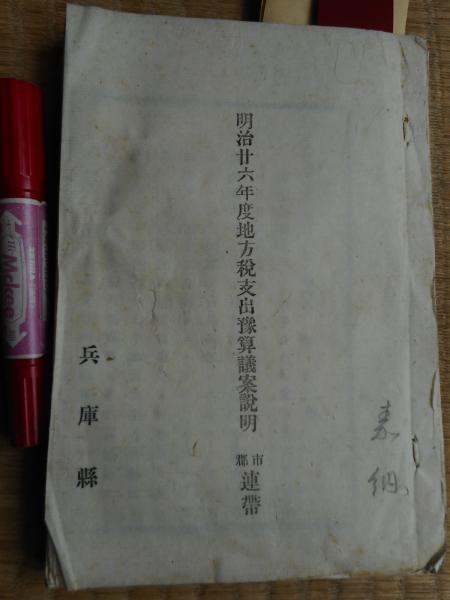 明治廿六年度地方税支出豫算議案説明 市郡連帶
兵庫縣
Mckee